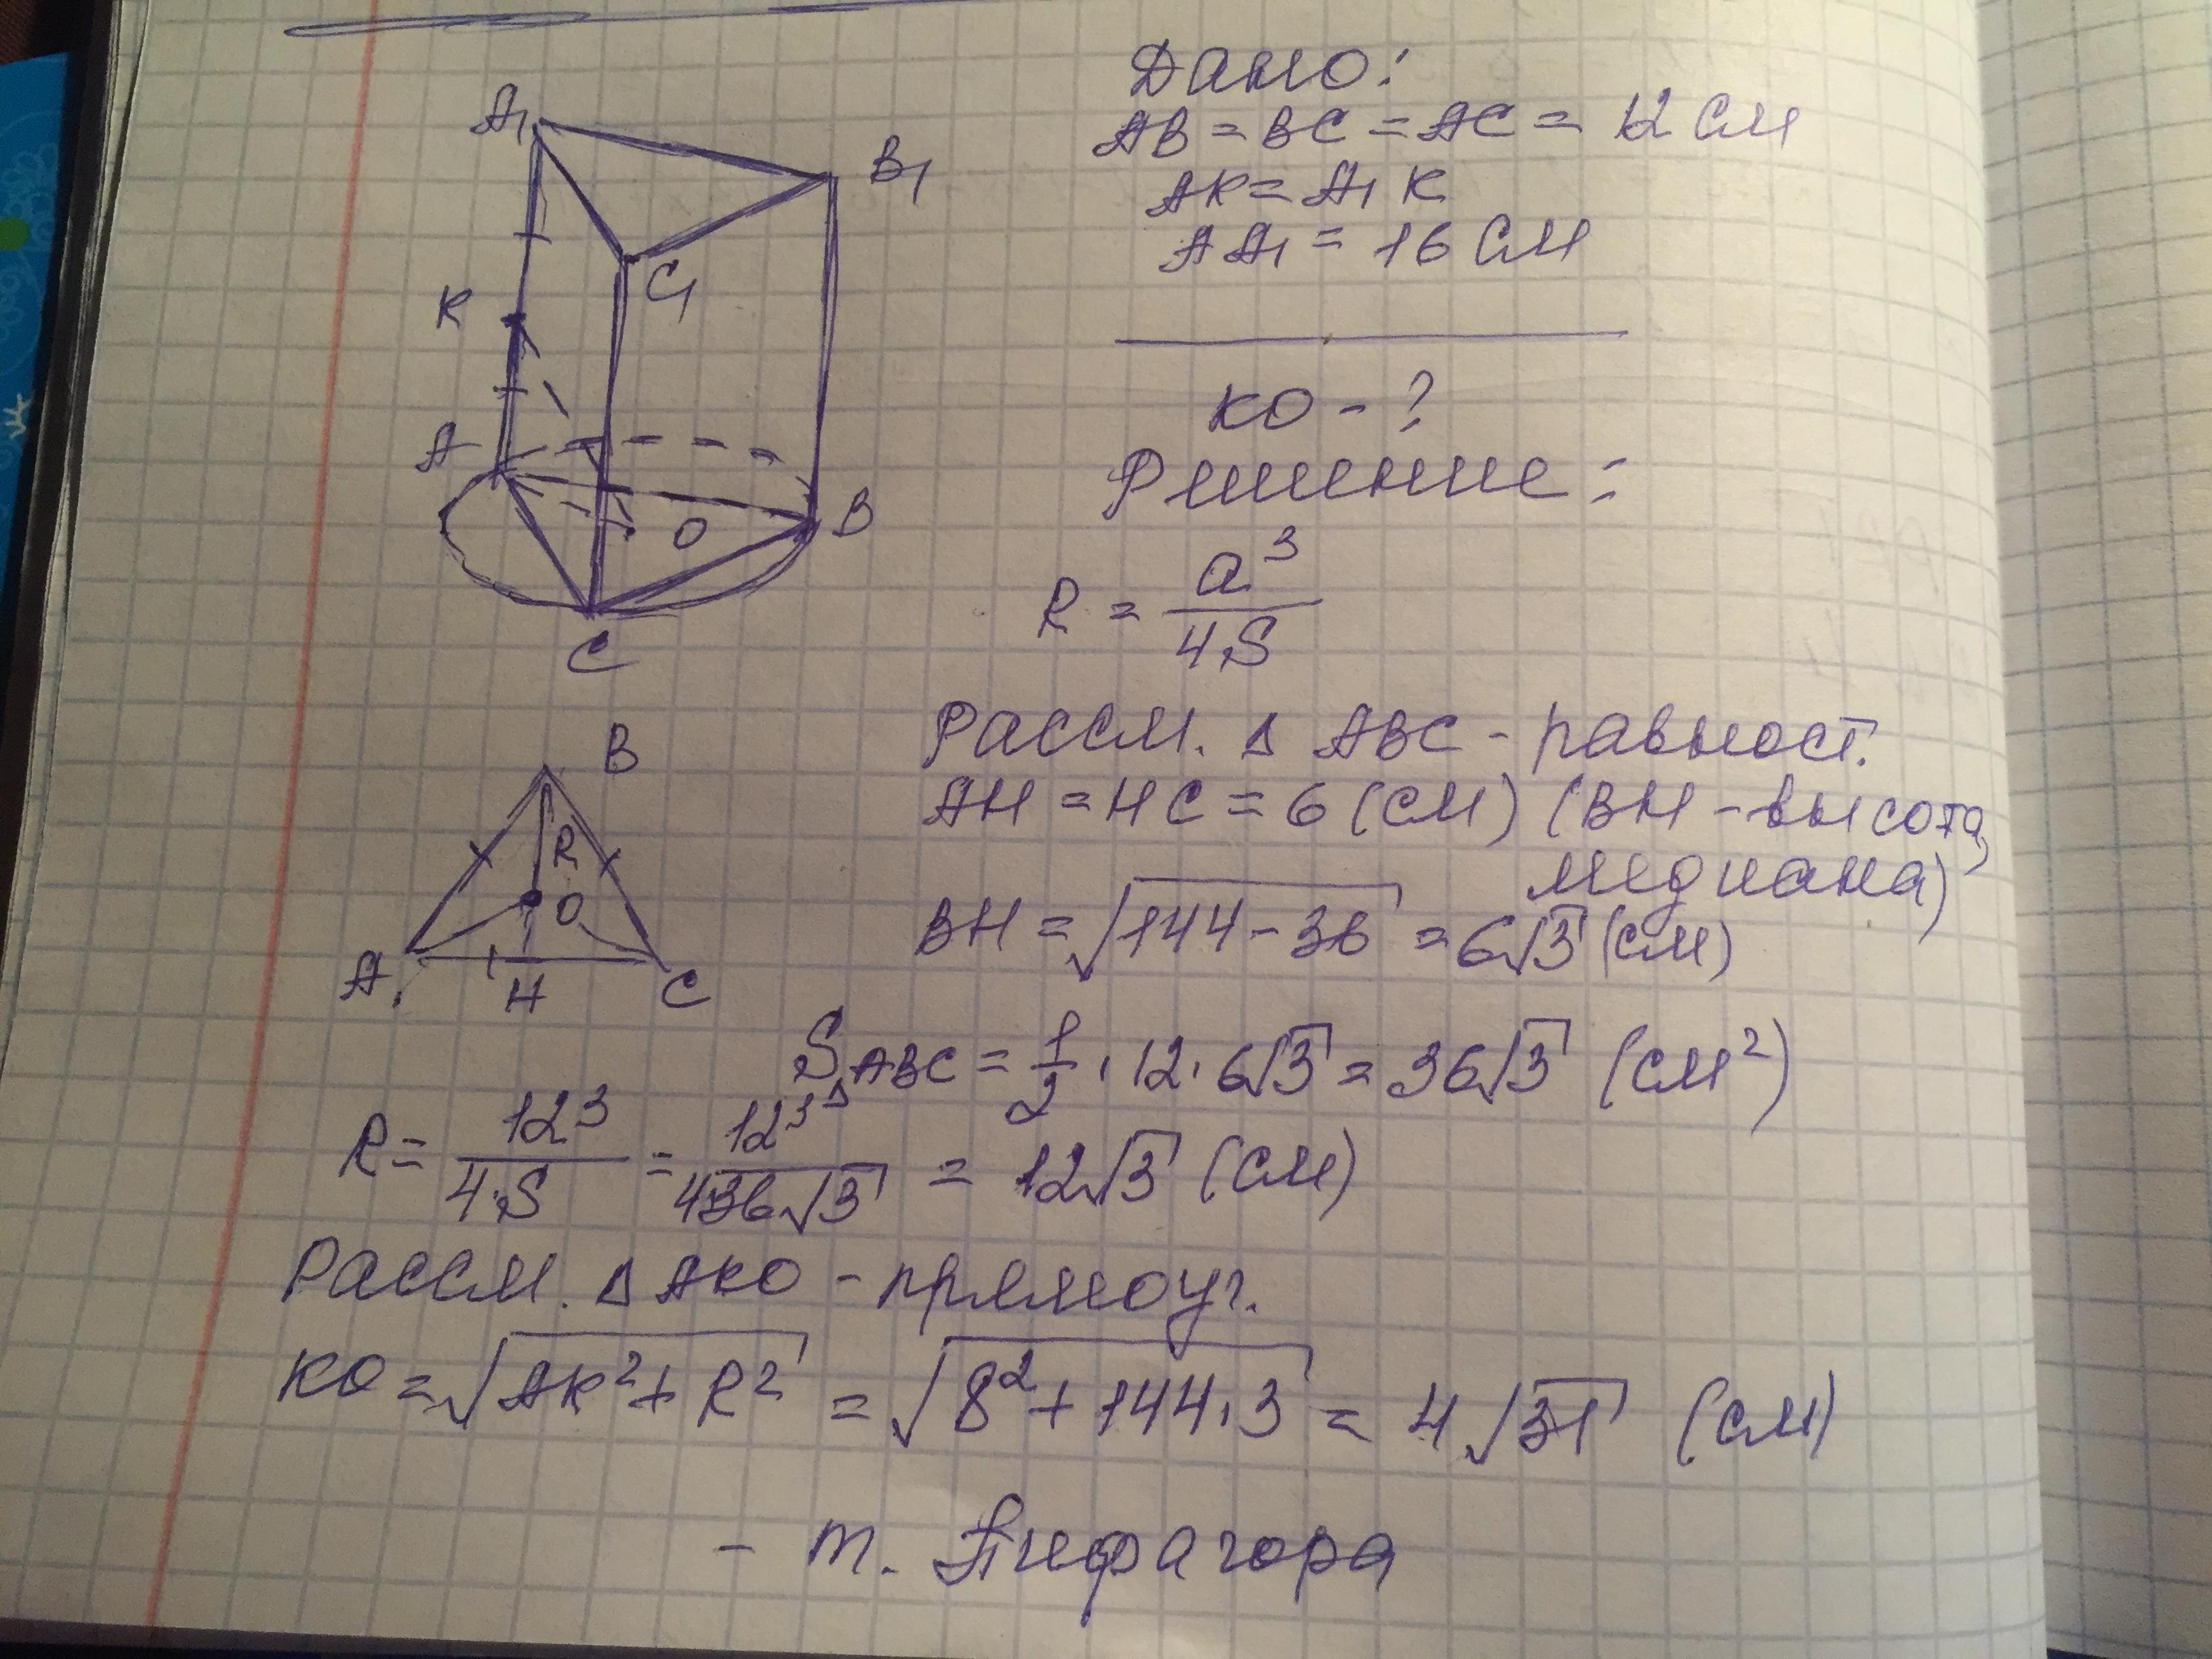 Дано:
AB = BC = AC = 12 см
AK = A₁ K
AA₁ = 16 см
KO - ?
Решение:
R = a³ / 4S
Рассм. Δ ABC - равност.
AH = HC = 6 (см) (BH - высота,
медиана)
BH = √(144 - 36) = 6√3 (см)
S ΔABC = 1/2 · 12 · 6√3 = 36√3 (см²)
R = 12³ / 4·S = 12³ / 4·36√3 = 12√3 (см)
Рассм. Δ AKO - прямоуг.
KO = √(AK² + R²) = √(8² + 144·3) = 4√31 (см)
- т. Пифагора
A₁
B₁
C₁
K
A
O
B
C
B
R
O
A
H
C